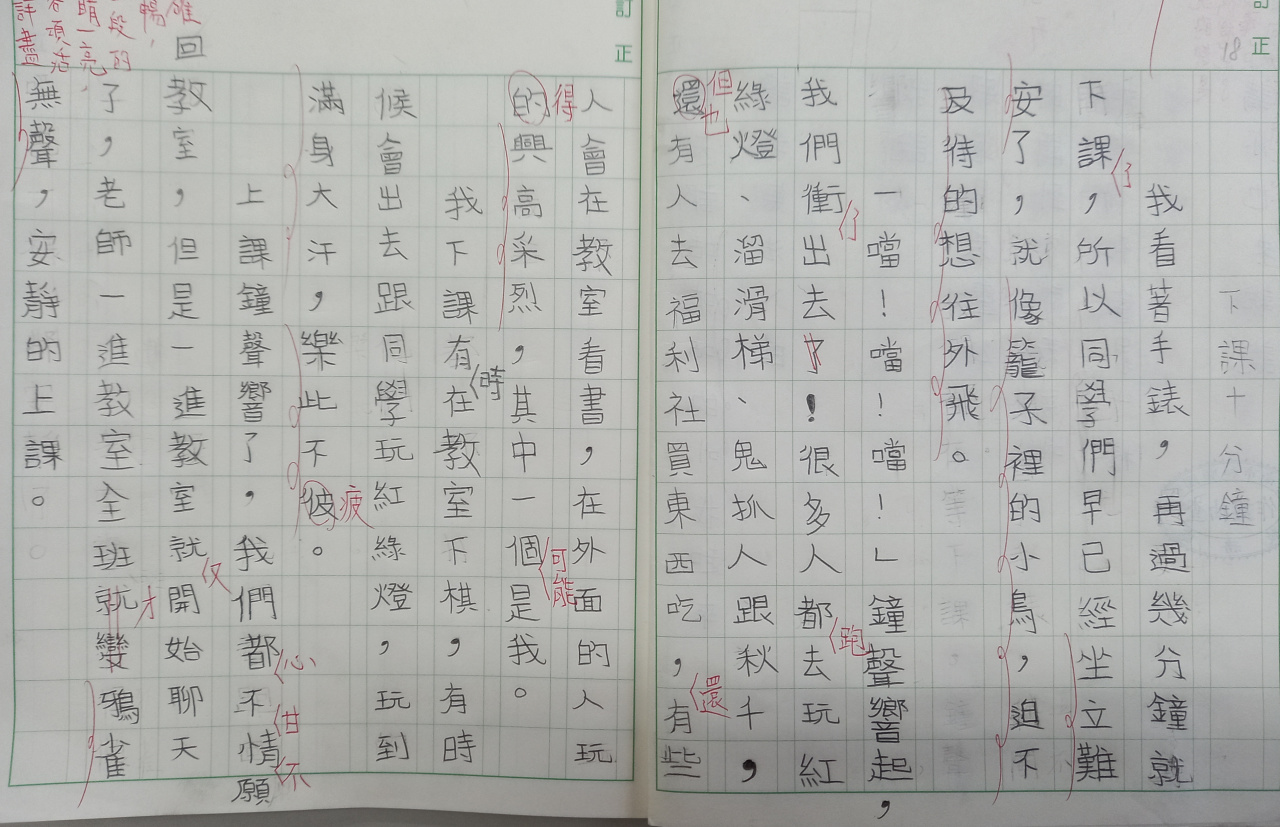 訂正
18
下課十分鐘
我看著手錶，再過幾分鐘就
下課，所以同學們早已經坐立難
了
安了，就像籠子裡的小鳥，迫不
及待的想往外飛。
「噹！噹！噹！」鐘聲響起，
我們衝出去了！很多人都去玩紅
了
跑
綠燈、溜滑梯、鬼抓人跟秋千，
還有人去福利社買東西吃，有些
但也
還
訂正
人會在教室看書，在外面的人玩
的興高采烈，其中一個是我。
得
可能
我下課有在教室下棋，有時
時
候會出去跟同學玩紅綠燈，玩到
滿身大汗，樂此不彼。
疲
上課鐘聲響了，我們都不情願
心
甘
不
回教室，但是一進教室，就開始聊天
又
了，老師一進教室全班就變鴉雀
才
無聲，安靜的上課。
暢，
段的
睛一亮
詳盡